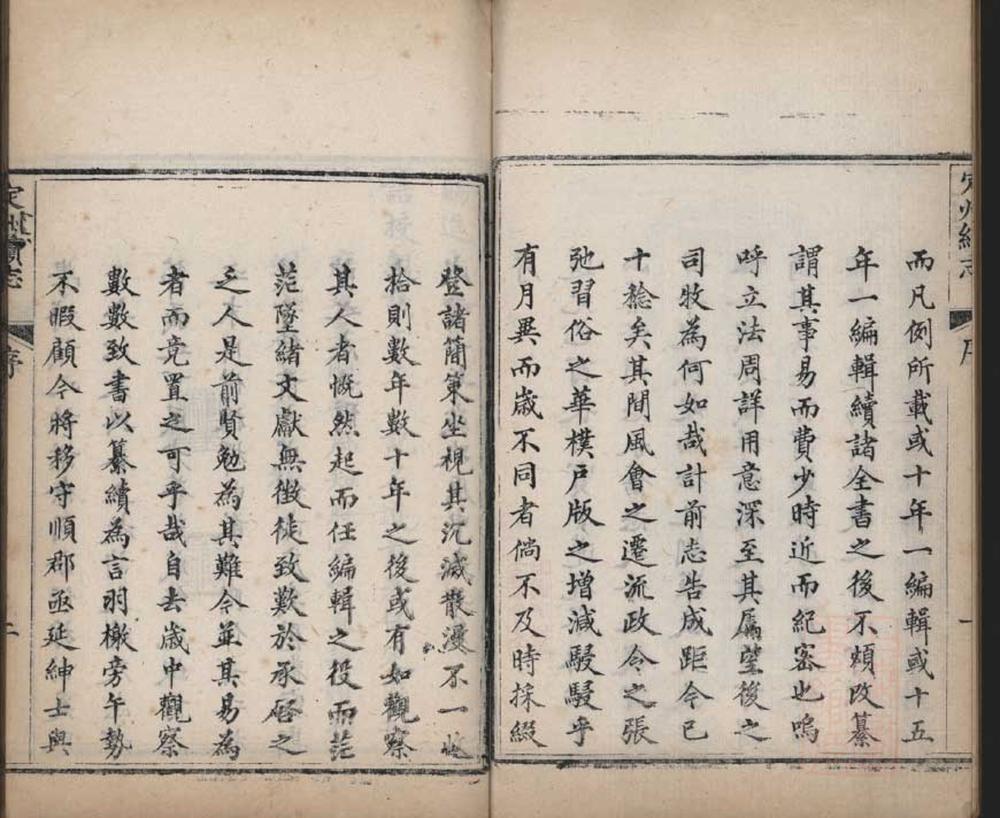 定州續志 序 一
而凡例所載或十年一編輯或十五
年一編輯續諸全書之後不煩改纂
謂其事易而費少時近而紀宻也嗚
呼立法周詳用意深至其屬望後之
司牧為何如哉計前志告成距今已
十稔矣其間風會之遷流政令之張
弛習俗之華樸戸版之增減駸駸乎
有月異而歲不同者倘不及時採綴
登諸簡策坐視其沉滅散漫不一收
拾則數年數十年之後或有如觀察
其人者慨然起而任編輯之役而茫
茫墜緒文獻無徴徒致歎於承啓之
乏人是前賢勉為其難今並其易為
者而竟置之可乎哉自去歲中觀察
數數致書以纂續為言羽檄旁午勢
不暇顧今將移守順郡亟延紳士與
定州續志 序 二